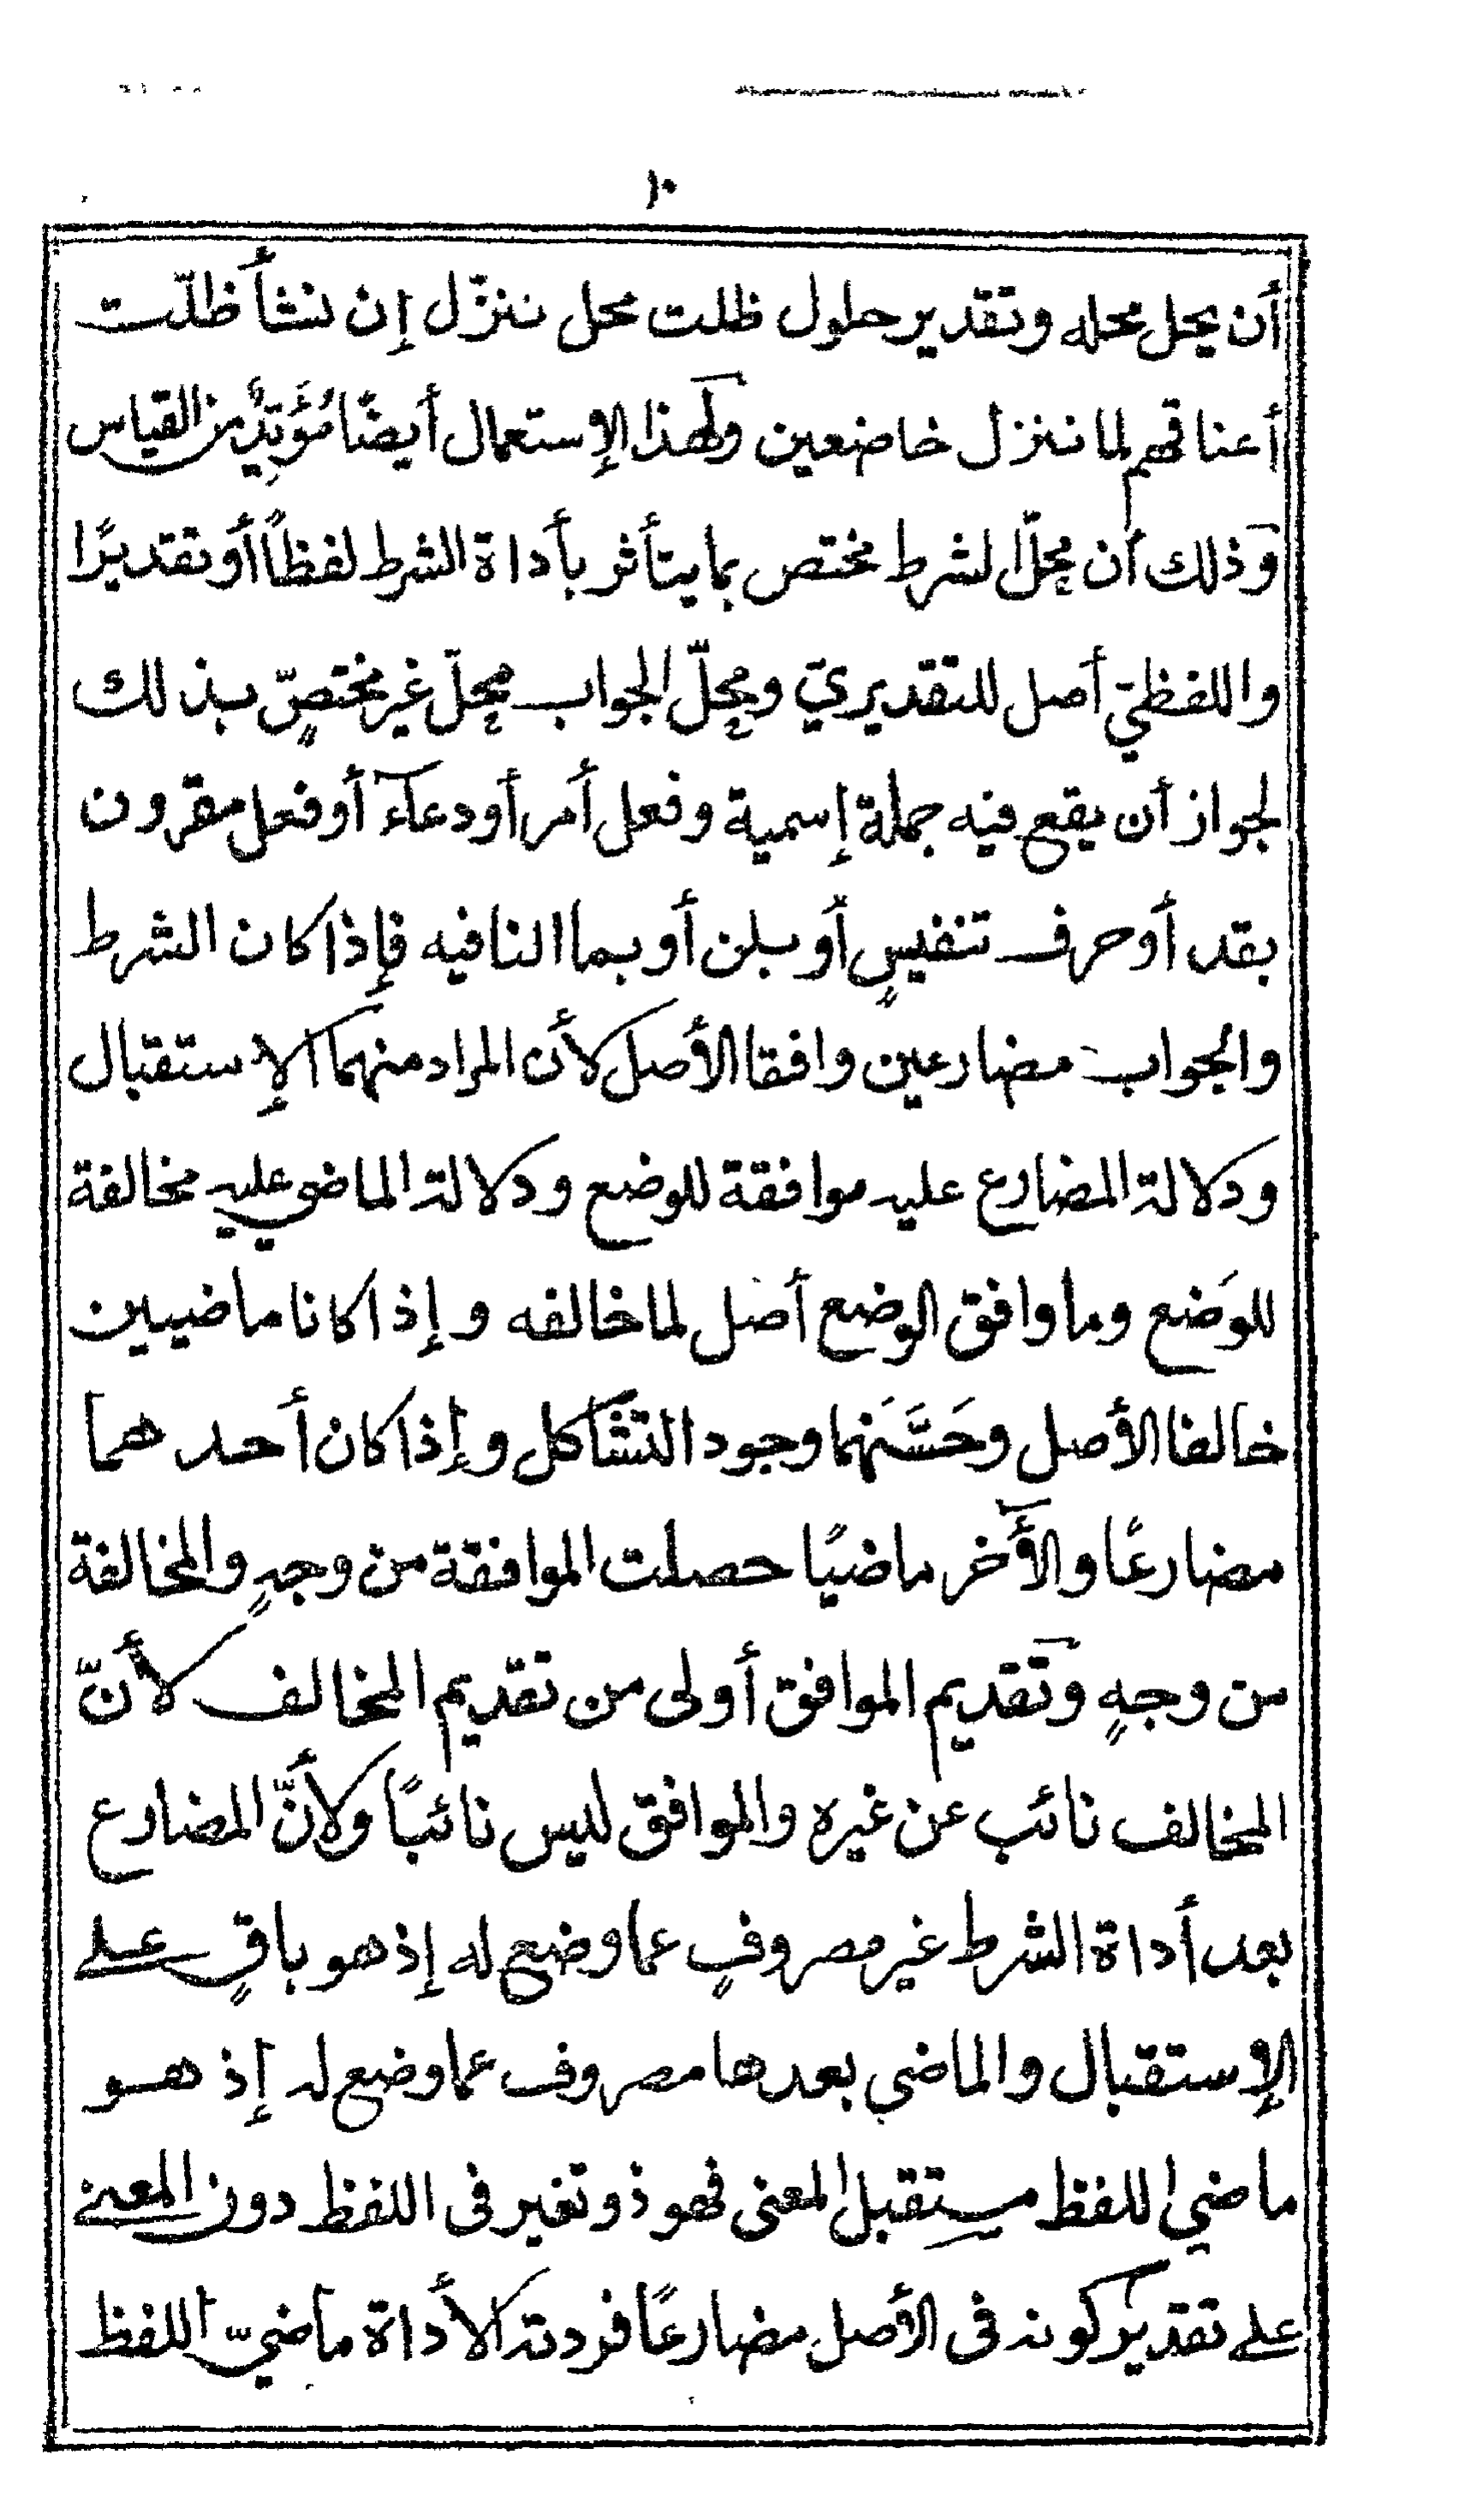 ١٠
أن يحل محله وتقدير حلول ظلت محل ننزّل إن نشأ ظلّت
أعناقهم لما ننزل خاضعين ولهذا الإستعمال أيضًا مُؤَيِّدٌ من القياس
وذلك أن محِلّ الشرط مختص بما يتأثر بأداة الشرط لفظاً أو تقديرًا
واللفظيّ أصل للتقديريّ ومحِلّ الجواب محِلّ غير مختصٍّ بذلك
لجواز أن يقع فيه جملة إسمية وفعل أمر أو دعآء أو فعل مقرون
بقد أو حرف تنفيسٍ أو بلن أو بما النافيه فإذا كان الشرط
والجواب مضارعين وافقا الأصل لأن المراد منهما الإستقبال
ودلالة المضارع عليه موافقة للوضع ودلالة الماضي عليه مخالفة
للوَضع وما وافق الوضع أصل لما خالفه وإذا كانا ماضيين
خالفا الأصل وحَسَّنَهما وجود التشاكل وإذا كان أحدهما
مضارعًا والآخر ماضيًا حصلت الموافقة من وجهٍ والمخالفة
من وجهٍ وتقديم الموافق أولى من تقديم المخالف لأنّ
المخالف نائب عن غيره والموافق ليس نائبًا ولأنّ المضارع
بعد أداة الشرط غير مصروفٍ عما وضع له إذ هو باقٍ على
الإستقبال والماضي بعدها مصروف عما وضع له إذ هو
ماضي اللفظ مستقبل المعنى فهو ذو تغير فى اللفظ دون المعنى
على تقدير كونه فى الأصل مضارعًا فردته الأداة ماضيّ اللفظ